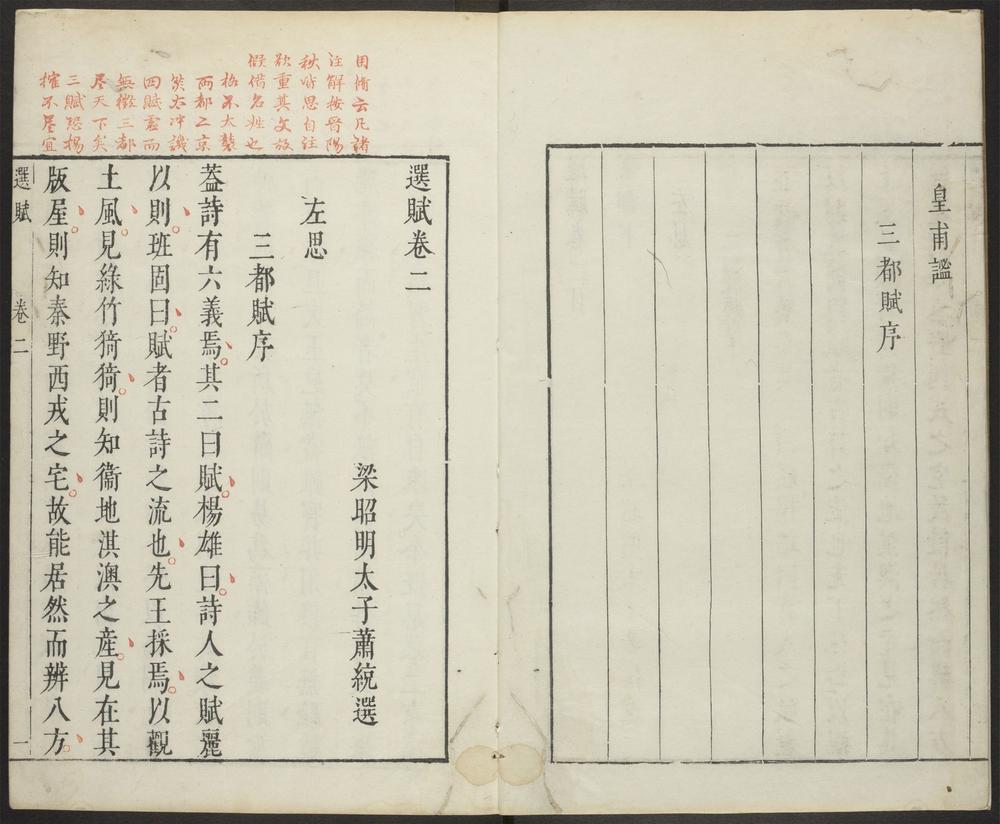 皇甫謐
三都賦序
用脩云凡諸
注解按晉陽
秋皆思自注
欲重其文故
假借名姓也
格不大襲
兩都二京
然太冲譏
四賦虛而
無徵三都
尽天下矣
三賦恐揚
搉不尽宜
選賦卷二
梁昭明太子蕭統選
左思
三都賦序
葢詩有六義焉其二曰賦楊雄曰詩人之賦麗
以則班固曰賦者古詩之流也先王採焉以觀
土風見綠竹猗猗則知衞地淇澳之產見在其
版屋則知秦野西戎之宅故能居然而辨八方
選賦 卷二 一